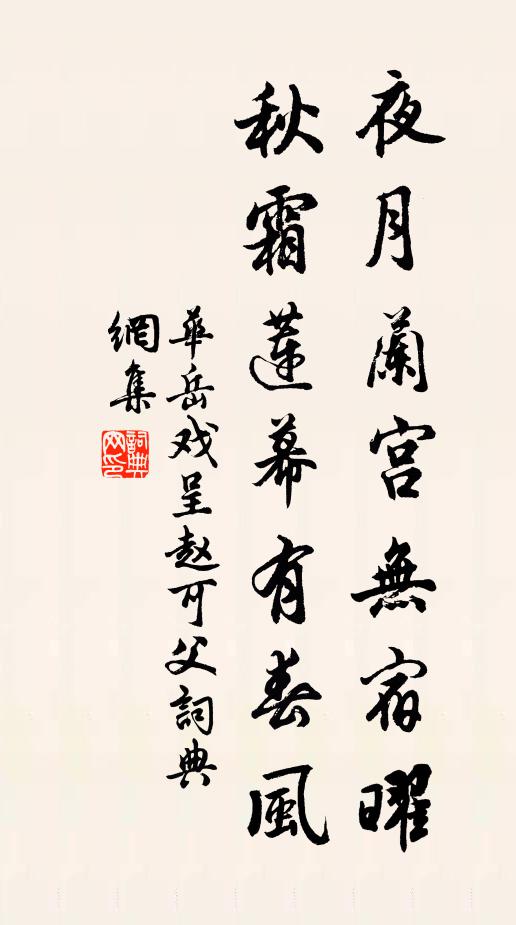 夜月蘭宫無宿曜
秋霜蓮幕有春風
華岳戏呈趙可父詞典
網集
詞典
网印